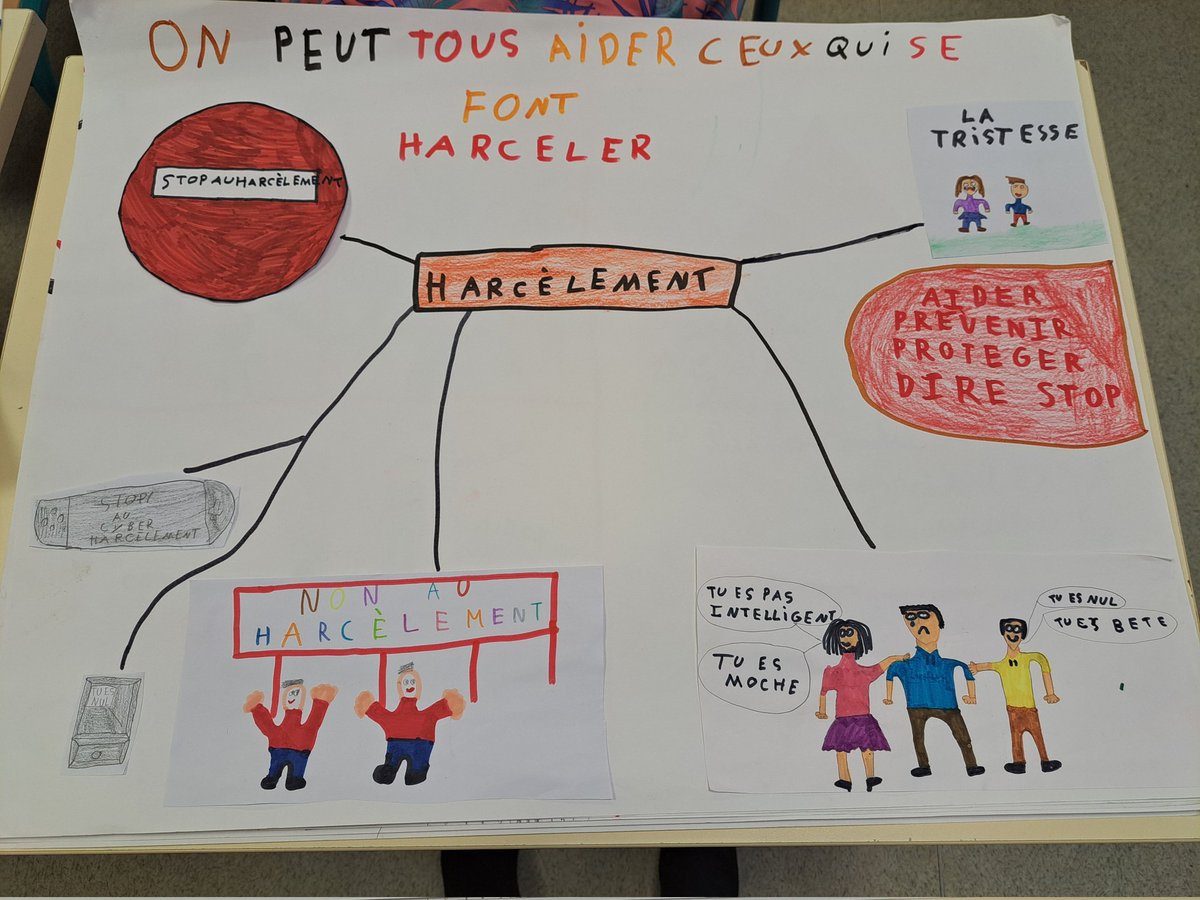 ON PEUT TOUS AIDER CEUX QUI SE
FONT
HARCELER
STOP AU HARCÈLEMENT
LA
TRISTESSE
HARCÈLEMENT
AIDER
PRÉVENIR
PROTEGER
DIRE STOP
STOP!
AU
CYBER
HARCÈLEMENT
TU ES
NUL
NON AU
HARCÈLEMENT
TU ES PAS
INTELLIGENT
TU ES
MOCHE
TU ES NUL
TU ES BETE